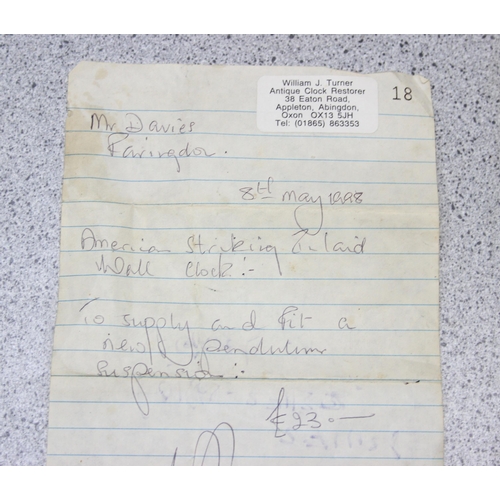 William J. Turner
Antique Clock Restorer
38 Eaton Road,
Appleton, Abingdon,
Oxon OX13 5JH
Tel: (01865) 863353
18
Mr Davies
Faringdon.
8th May 1998
American Striking Inlaid
Wall Clock:-
To supply and fit a
new pendulum
suspension:-
£23.—